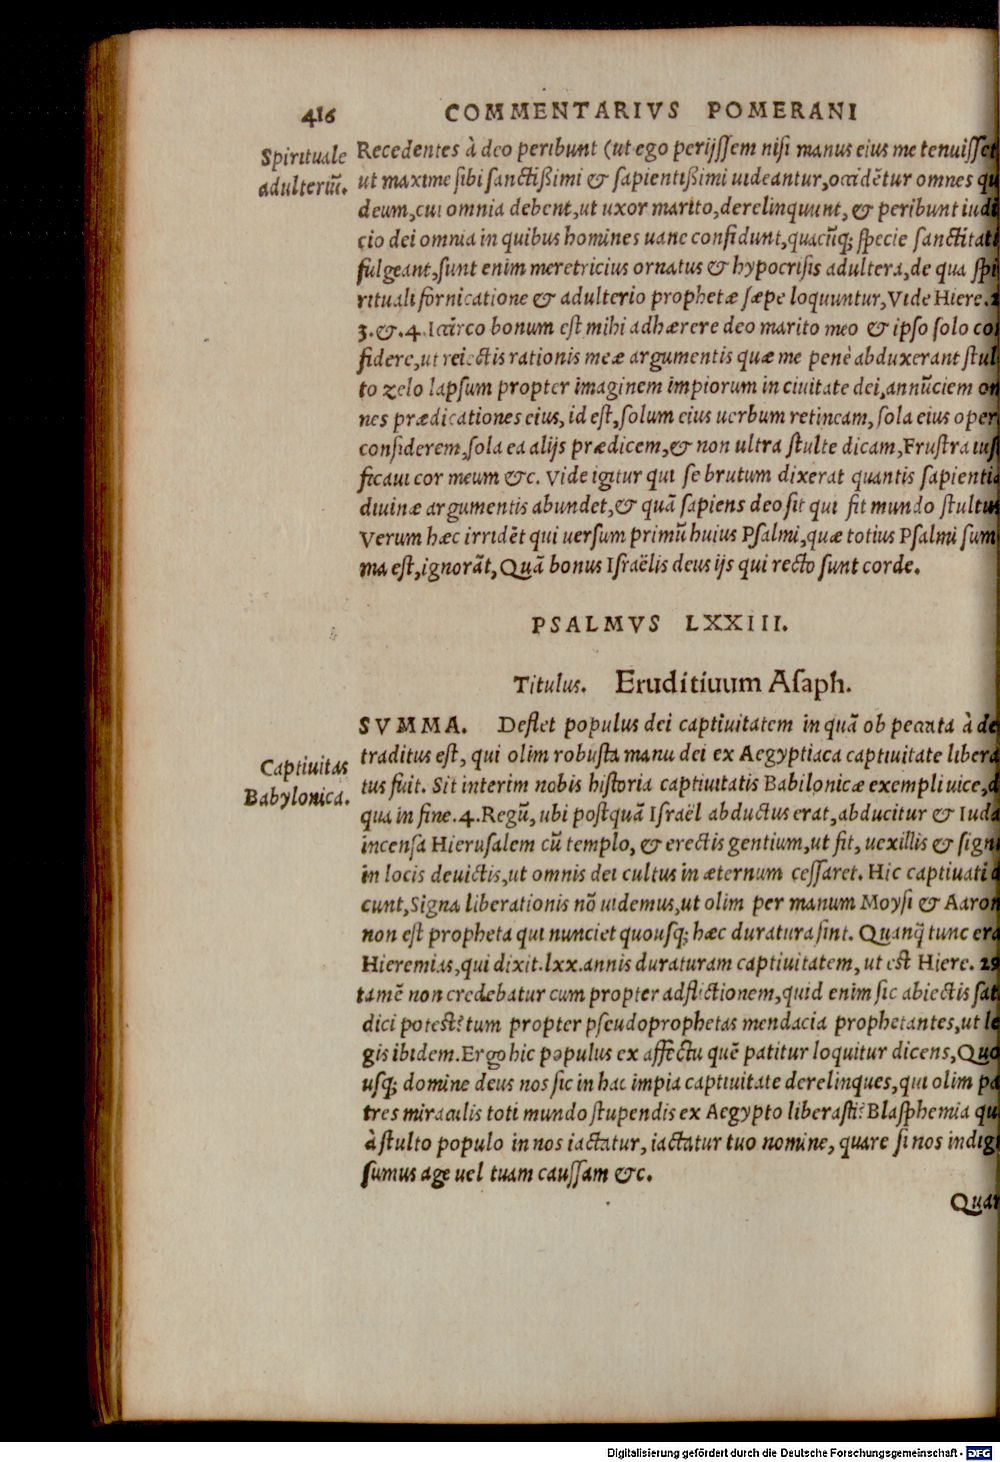 416 COMMENTARIVS POMERANI
Spirituale
adulteriũ.
Recedentes à deo peribunt (ut ego perijſſem niſi manus eius me tenuiſſet
ut maxime ſibi ſanctißimi & ſapientißimi uideantur,occidẽtur omnes qu
deum,cui omnia debent,ut uxor marito,derelinquunt, & peribunt iudi
cio dei omnia in quibus homines uane confidunt,quacũq; ſpecie ſanctitati
fulgeant,ſunt enim meretricius ornatus & hypocriſis adultera,de qua ſpi
rituali fornicatione & adulterio prophetæ ſæpe loquuntur,Vide Hiere.2
3.&.4.Idcirco bonum eſt mihi adhærere deo marito meo & ipſo ſolo con
fidere,ut reiectis rationis meæ argumentis quæ me penè abduxerant ſtul
to zelo lapſum propter imaginem impiorum in ciuitate dei,annũciem om
nes prædicationes eius, id eſt,ſolum eius uerbum retineam, ſola eius oper
conſiderem,ſola ea alijs prædicem,& non ultra ſtulte dicam,Fruſtra iuſ
ficaui cor meum &c. Vide igitur qui ſe brutum dixerat quantis ſapientia
diuinæ argumentis abundet,& quã ſapiens deo ſit qui fit mundo ſtultus
Verum hæc irridẽt qui uerſum primũ huius Pſalmi,quæ totius Pſalmi ſum
ma eſt,ignorãt,Quã bonus Iſraëlis deus ijs qui recto ſunt corde.
PSALMVS LXXIII.
Titulus. Eruditiuum Aſaph.
Captiuitas
Babylonica.
SVMMA. Deflet populus dei captiuitatem in quã ob peccata à de
traditus eſt, qui olim robuſta manu dei ex Aegyptiaca captiuitate libera
tus fuit. Sit interim nobis hiſtoria captiuitatis Babilonicæ exempli uice,d
qua in fine.4.Regũ, ubi poſtquã Iſraël abductus erat,abducitur & Iuda
incenſa Hieruſalem cũ templo, & erectis gentium,ut fit, uexillis & ſigni
in locis deuictis,ut omnis dei cultus in æternum ceſſaret. Hic captiuati d
cunt,Signa liberationis nõ uidemus,ut olim per manum Moyſi & Aaron
non eſt propheta qui nunciet quouſq; hæc duratura ſint. Quanq̃ tunc era
Hieremias,qui dixit.lxx.annis duraturam captiuitatem, ut eſt Hiere. 29
tamẽ non credebatur cum propter adflictionem,quid enim ſic abiectis ſat
dici poteſt? tum propter pſeudoprophetas mendacia prophetantes,ut le
gis ibidem.Ergo hic populus ex affectu quẽ patitur loquitur dicens,Quo
uſq; domine deus nos ſic in hac impia captiuitate derelinques,qui olim pa
tres miraculis toti mundo ſtupendis ex Aegypto liberaſti? Blaſphemia qu
à ſtulto populo in nos iactatur, iactatur tuo nomine, quare ſi nos indigi
ſumus age uel tuam cauſſam &c.
Quar
Digitalisierung gefördert durch die Deutsche Forschungsgemeinschaft - DFG